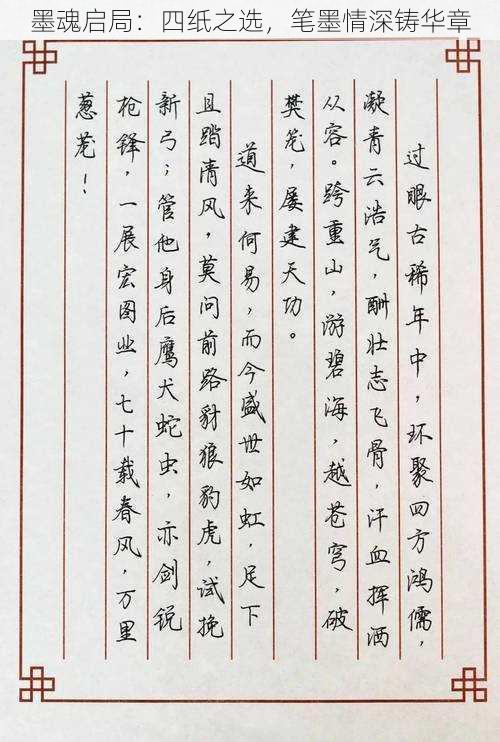 墨魂启局：四纸之选，笔墨情深铸华章
过眼古稀年中，环聚四方鸿儒，
凝青云浩气，酬壮志飞骨，汗血挥洒
从容。跨重山，游碧海，越苍穹，破
樊笼，屡建天功。
道来何易，而今盛世如虹，足下
且踏清风，莫问前路豺狼豹虎，试挽
新弓；管他身后鹰犬蛇虫，亦剑锐
枪铎，一展宏图业，七十载春风，万里
葱茏！